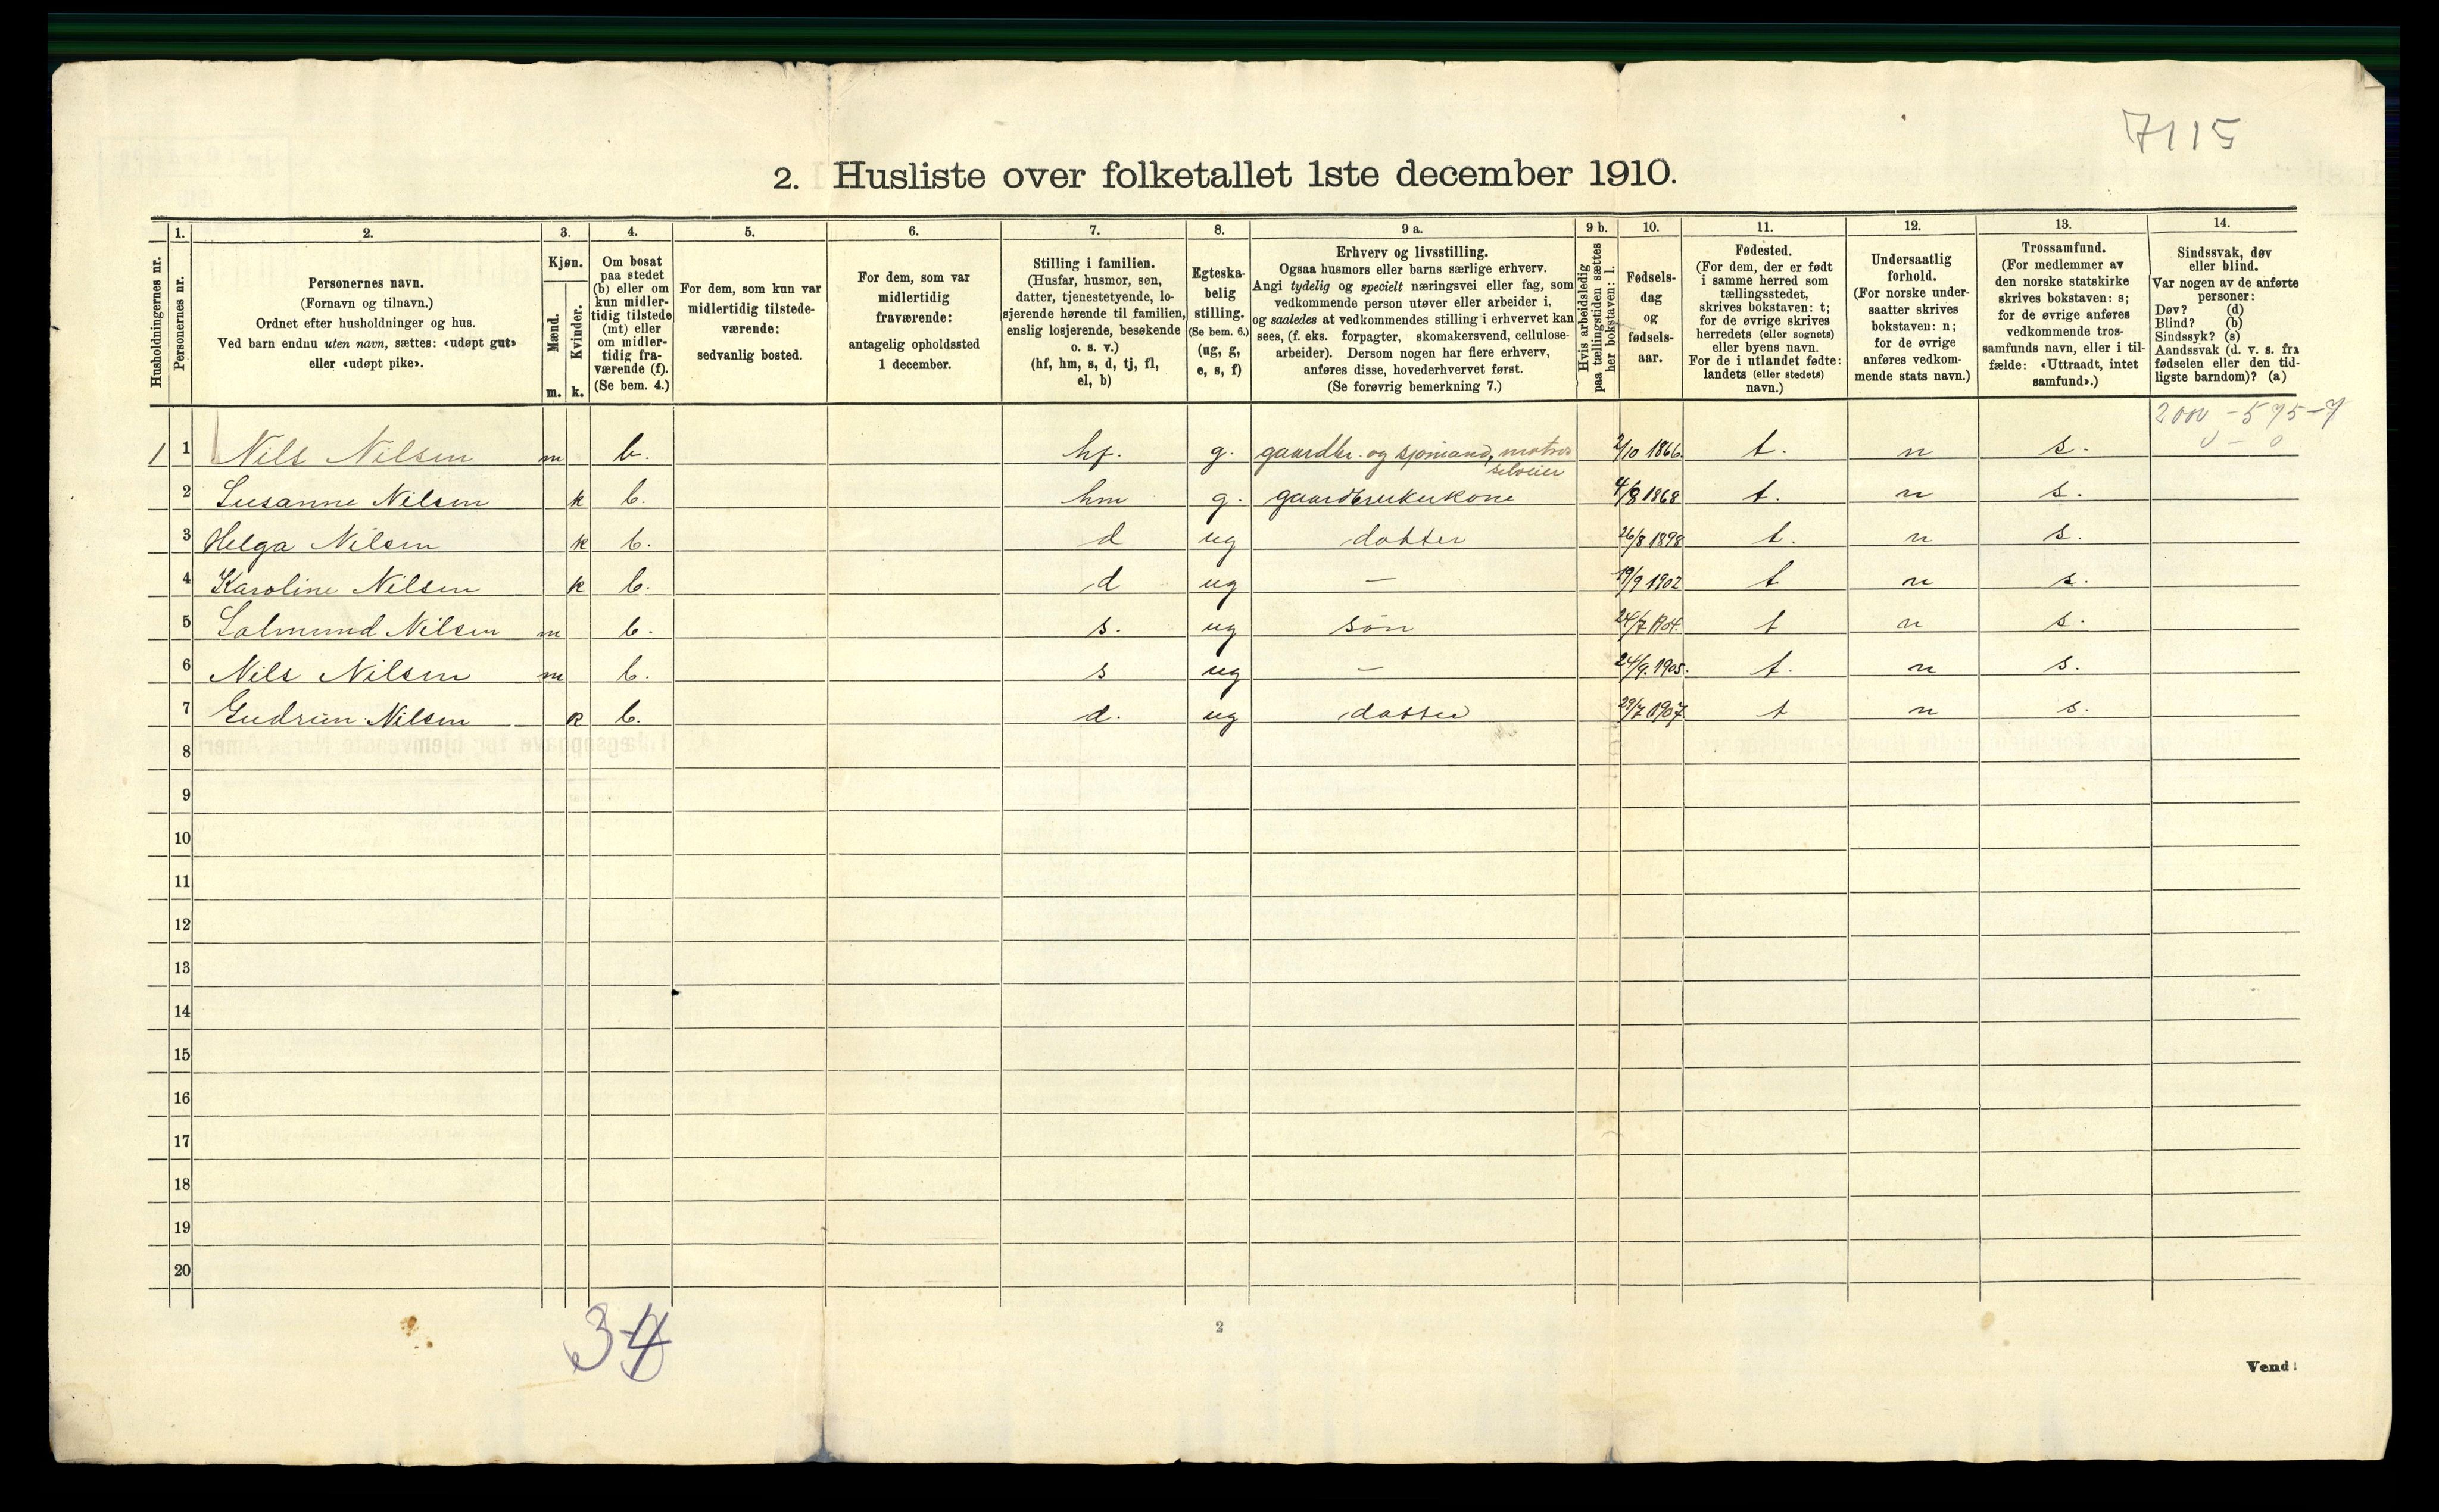 7115
2. Husliste over folketallet 1ste december 1910.
Husholdningernes nr.
1.
Personernes nr.
2.
Personernes navn.
(Fornavn og tilnavn.)
Ordnet efter husholdninger og hus.
Ved barn endnu uten navn, sættes: «udøpt gut»
eller «udøpt pike».
3.
Kjøn.
Mænd.
Kvinder.
m. k.
4.
Om bosat
paa stedet
(b) eller om
kun midler-
tidig tilstede
(mt) eller
om midler-
tidig fra-
værende (f).
(Se bem. 4.)
5.
For dem, som kun var
midlertidig tilstede-
værende:
sedvanlig bosted.
6.
For dem, som var
midlertidig
fraværende:
antagelig opholdssted
1 december.
7.
Stilling i familien.
(Husfar, husmor, søn,
datter, tjenestetyende, lo-
sjerende hørende til familien,
enslig losjerende, besøkende
o. s. v.)
(hf, hm, s, d, tj, fl,
el, b)
8.
Egteska-
belig
stilling.
(Se bem. 6.)
(ug, g,
e, s, f)
9 a.
Erhverv og livsstilling.
Ogsaa husmors eller barns særlige erhverv.
Angi tydelig og specielt næringsvei eller fag, som
vedkommende person utøver eller arbeider i,
og saaledes at vedkommendes stilling i erhvervet kan
sees, (f. eks. forpagter, skomakersvend, cellulose-
arbeider). Dersom nogen har flere erhverv,
anføres disse, hovederhvervet først.
(Se forøvrig bemerkning 7.)
9 b.
Hvis arbeidsledig
paa tællingstiden sættes
her bokstaven: l.
10.
Fødsels-
dag
og
fødsels-
aar.
11.
Fødested.
(For dem, der er født
i samme herred som
tællingsstedet,
skrives bokstaven: t;
for de øvrige skrives
herredets (eller sognets)
eller byens navn.
For de i utlandet fødte:
landets (eller stedets)
navn.)
12.
Undersaatlig
forhold.
(For norske under-
saatter skrives
bokstaven: n;
for de øvrige
anføres vedkom-
mende stats navn.)
13.
Trossamfund.
(For medlemmer av
den norske statskirke
skrives bokstaven: s;
for de øvrige anføres
vedkommende tros-
samfunds navn, eller i til-
fælde: «Uttraadt, intet
samfund».)
14.
Sindssvak, døv
eller blind.
Var nogen av de anførte
personer:
Døv? (d)
Blind? (b)
Sindssyk? (s)
Aandssvak (d. v. s. fra
fødselen eller den tid-
ligste barndom)? (a)
- 575-7
0 - 0
1 1 Nils Nilsen m b. hf. g. gaardbr. og sjømand, matros 2/10 1866. t. n s.
selveier
2 Susanne Nilsen k b. hm g. gaardbrukerkone 4/8 1868 t. n s.
3 Helga Nilsen k b. d ug datter 26/8 1898 t. n s.
4 Karoline Nilsen k b. d ug — 19/9 1902 t n s.
5 Salmund Nilsen m b. s. ug søn 24/7 1904. t n s.
6 Nils Nilsen m b. s ug — 24/9. 1905. t. n s.
7 Gudrun Nilsen k b. d. ug datter 29/7 1907. t n s.
8
9
10
11
12
13
14
15
16
17
18
19
20
34
2
Vend!